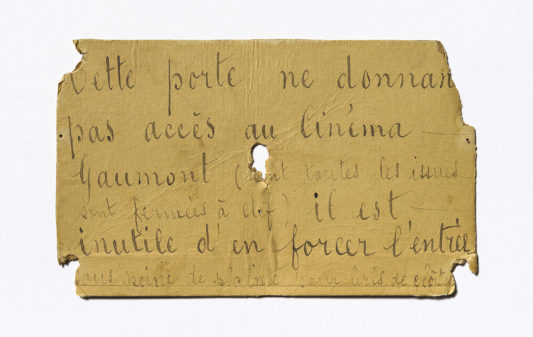 Cette porte ne donnant
pas accès au Cinéma
Gaumont (dont toutes les issues
sont fermées à clef) il est
inutile d'en forcer l'entrée
sous peine de plainte pour bris de clôture